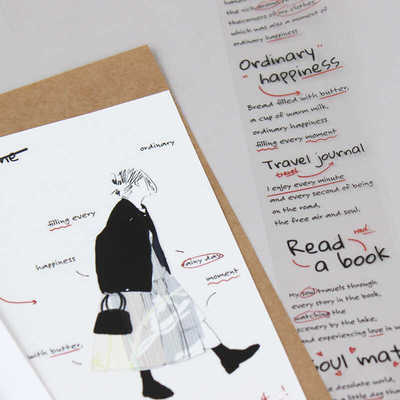 which was also a moment of
ordinary happiness.
"Ordinary
happiness"
Bread filled with butter,
a cup of warm milk,
ordinary happiness
filling every moment
Travel journal
travel
I enjoy every minute
and every second of being
on the road,
the free air and soul.
Read
read
a book
My soul travels through
every story in the book,
watching the
scenery by the lake,
and experiencing love in
soul mat
desolate world,
a little dog
ordinary
filling every
happiness
rainy day
moment
with butter,